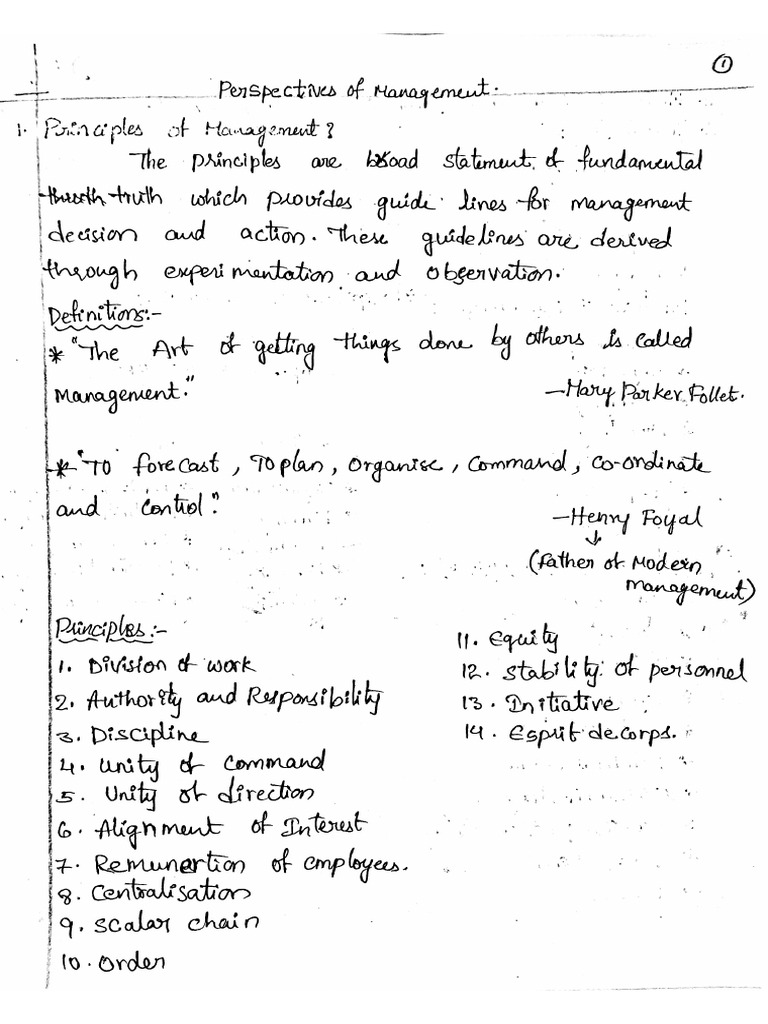 ①
Perspectives of Management.
1. Principles of Management?
The principles are broad statement of fundamental
truth which provides guide lines for management
decision and action. These guidelines are derived
through experimentation and observation.
Definitions:-
* "The Art of getting things done by others is called
Management."
-Mary Parker Follet.
* "To forecast, To plan, Organise, Command, Co-ordinate
and control".
-Henry Foyal
↓
(father of Modern
management)
Principles:-
1. Division of work
2. Authority and Responsibility
3. Discipline
4. Unity of command
5. Unity of direction
6. Alignment of Interest
7. Remunertion of employees.
8. Centralisation
9. Scalar chain
10. Order
11. Equity
12. Stability of personnel
13. Initiative
14. Esprit de corps.